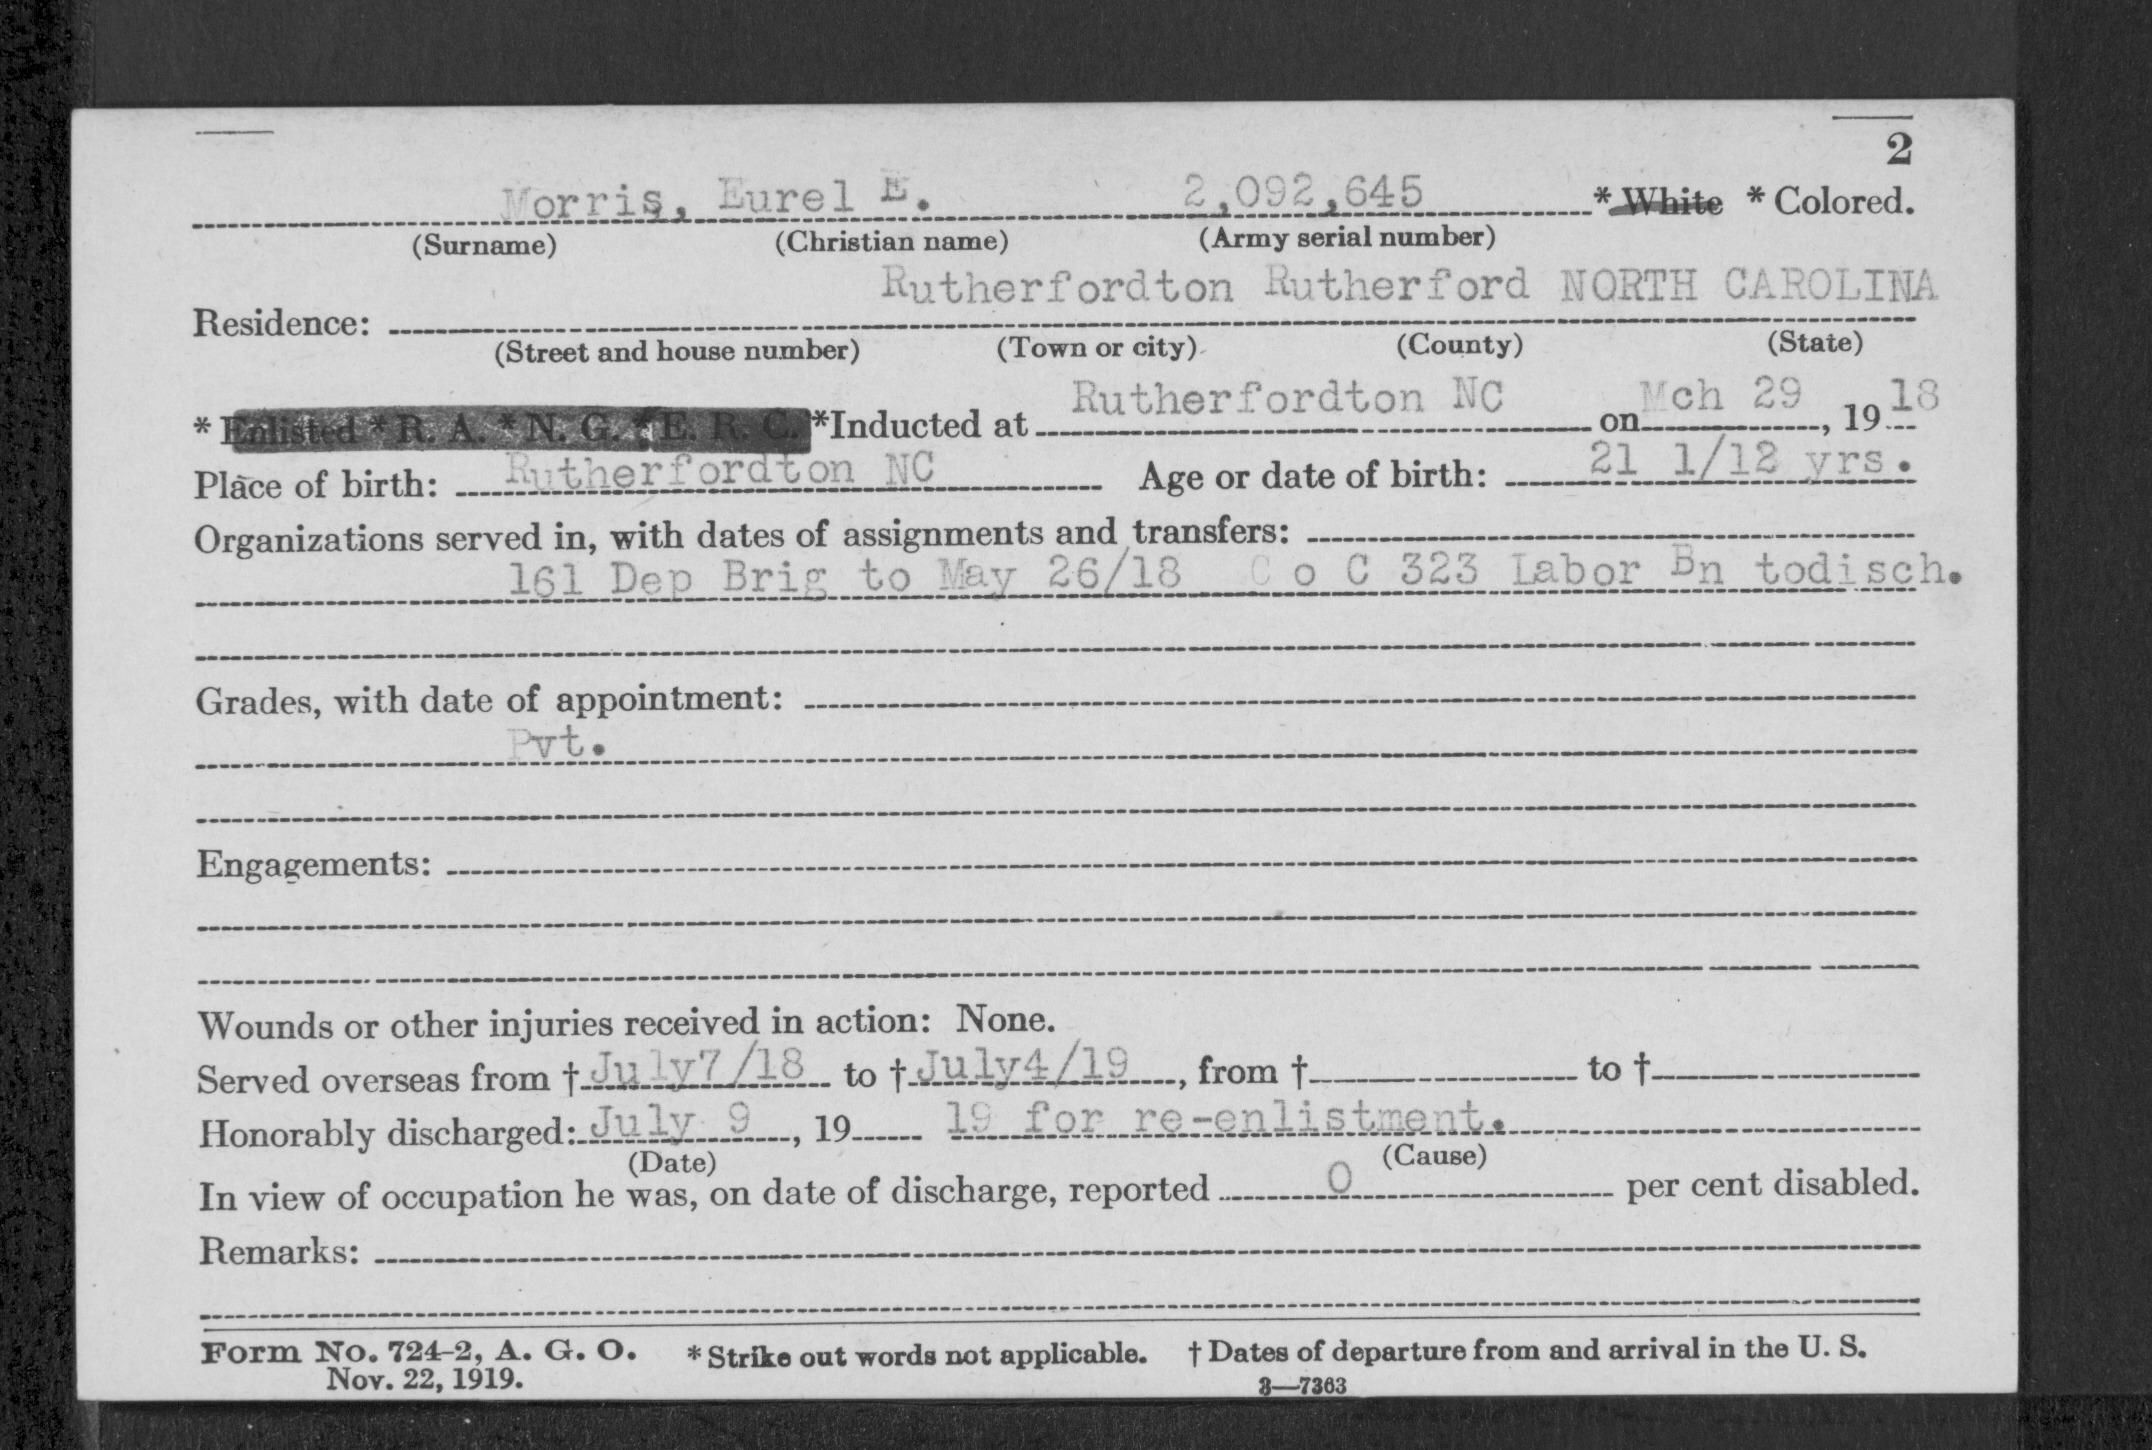 2
Morris, Eurel E. 2,092,645 * White * Colored.
(Surname) (Christian name) (Army serial number)
Rutherfordton Rutherford NORTH CAROLINA
Residence:
(Street and house number) (Town or city) (County) (State)
* Enlisted * R. A. * N. G. * E. R. C. *Inducted at Rutherfordton NC on Mch 29, 19 18
Place of birth: Rutherfordton NC Age or date of birth: 21 1/12 yrs.
Organizations served in, with dates of assignments and transfers:
161 Dep Brig to May 26/18 C o C 323 Labor Bn todisch.
Grades, with date of appointment:
Pvt.
Engagements:
Wounds or other injuries received in action: None.
Served overseas from † July7/18 to † July4/19, from † to †
Honorably discharged: July 9, 19 19 for re-enlistment.
(Date) (Cause)
In view of occupation he was, on date of discharge, reported 0 per cent disabled.
Remarks:
Form No. 724-2, A. G. O. * Strike out words not applicable. † Dates of departure from and arrival in the U. S.
Nov. 22, 1919. 3—7363